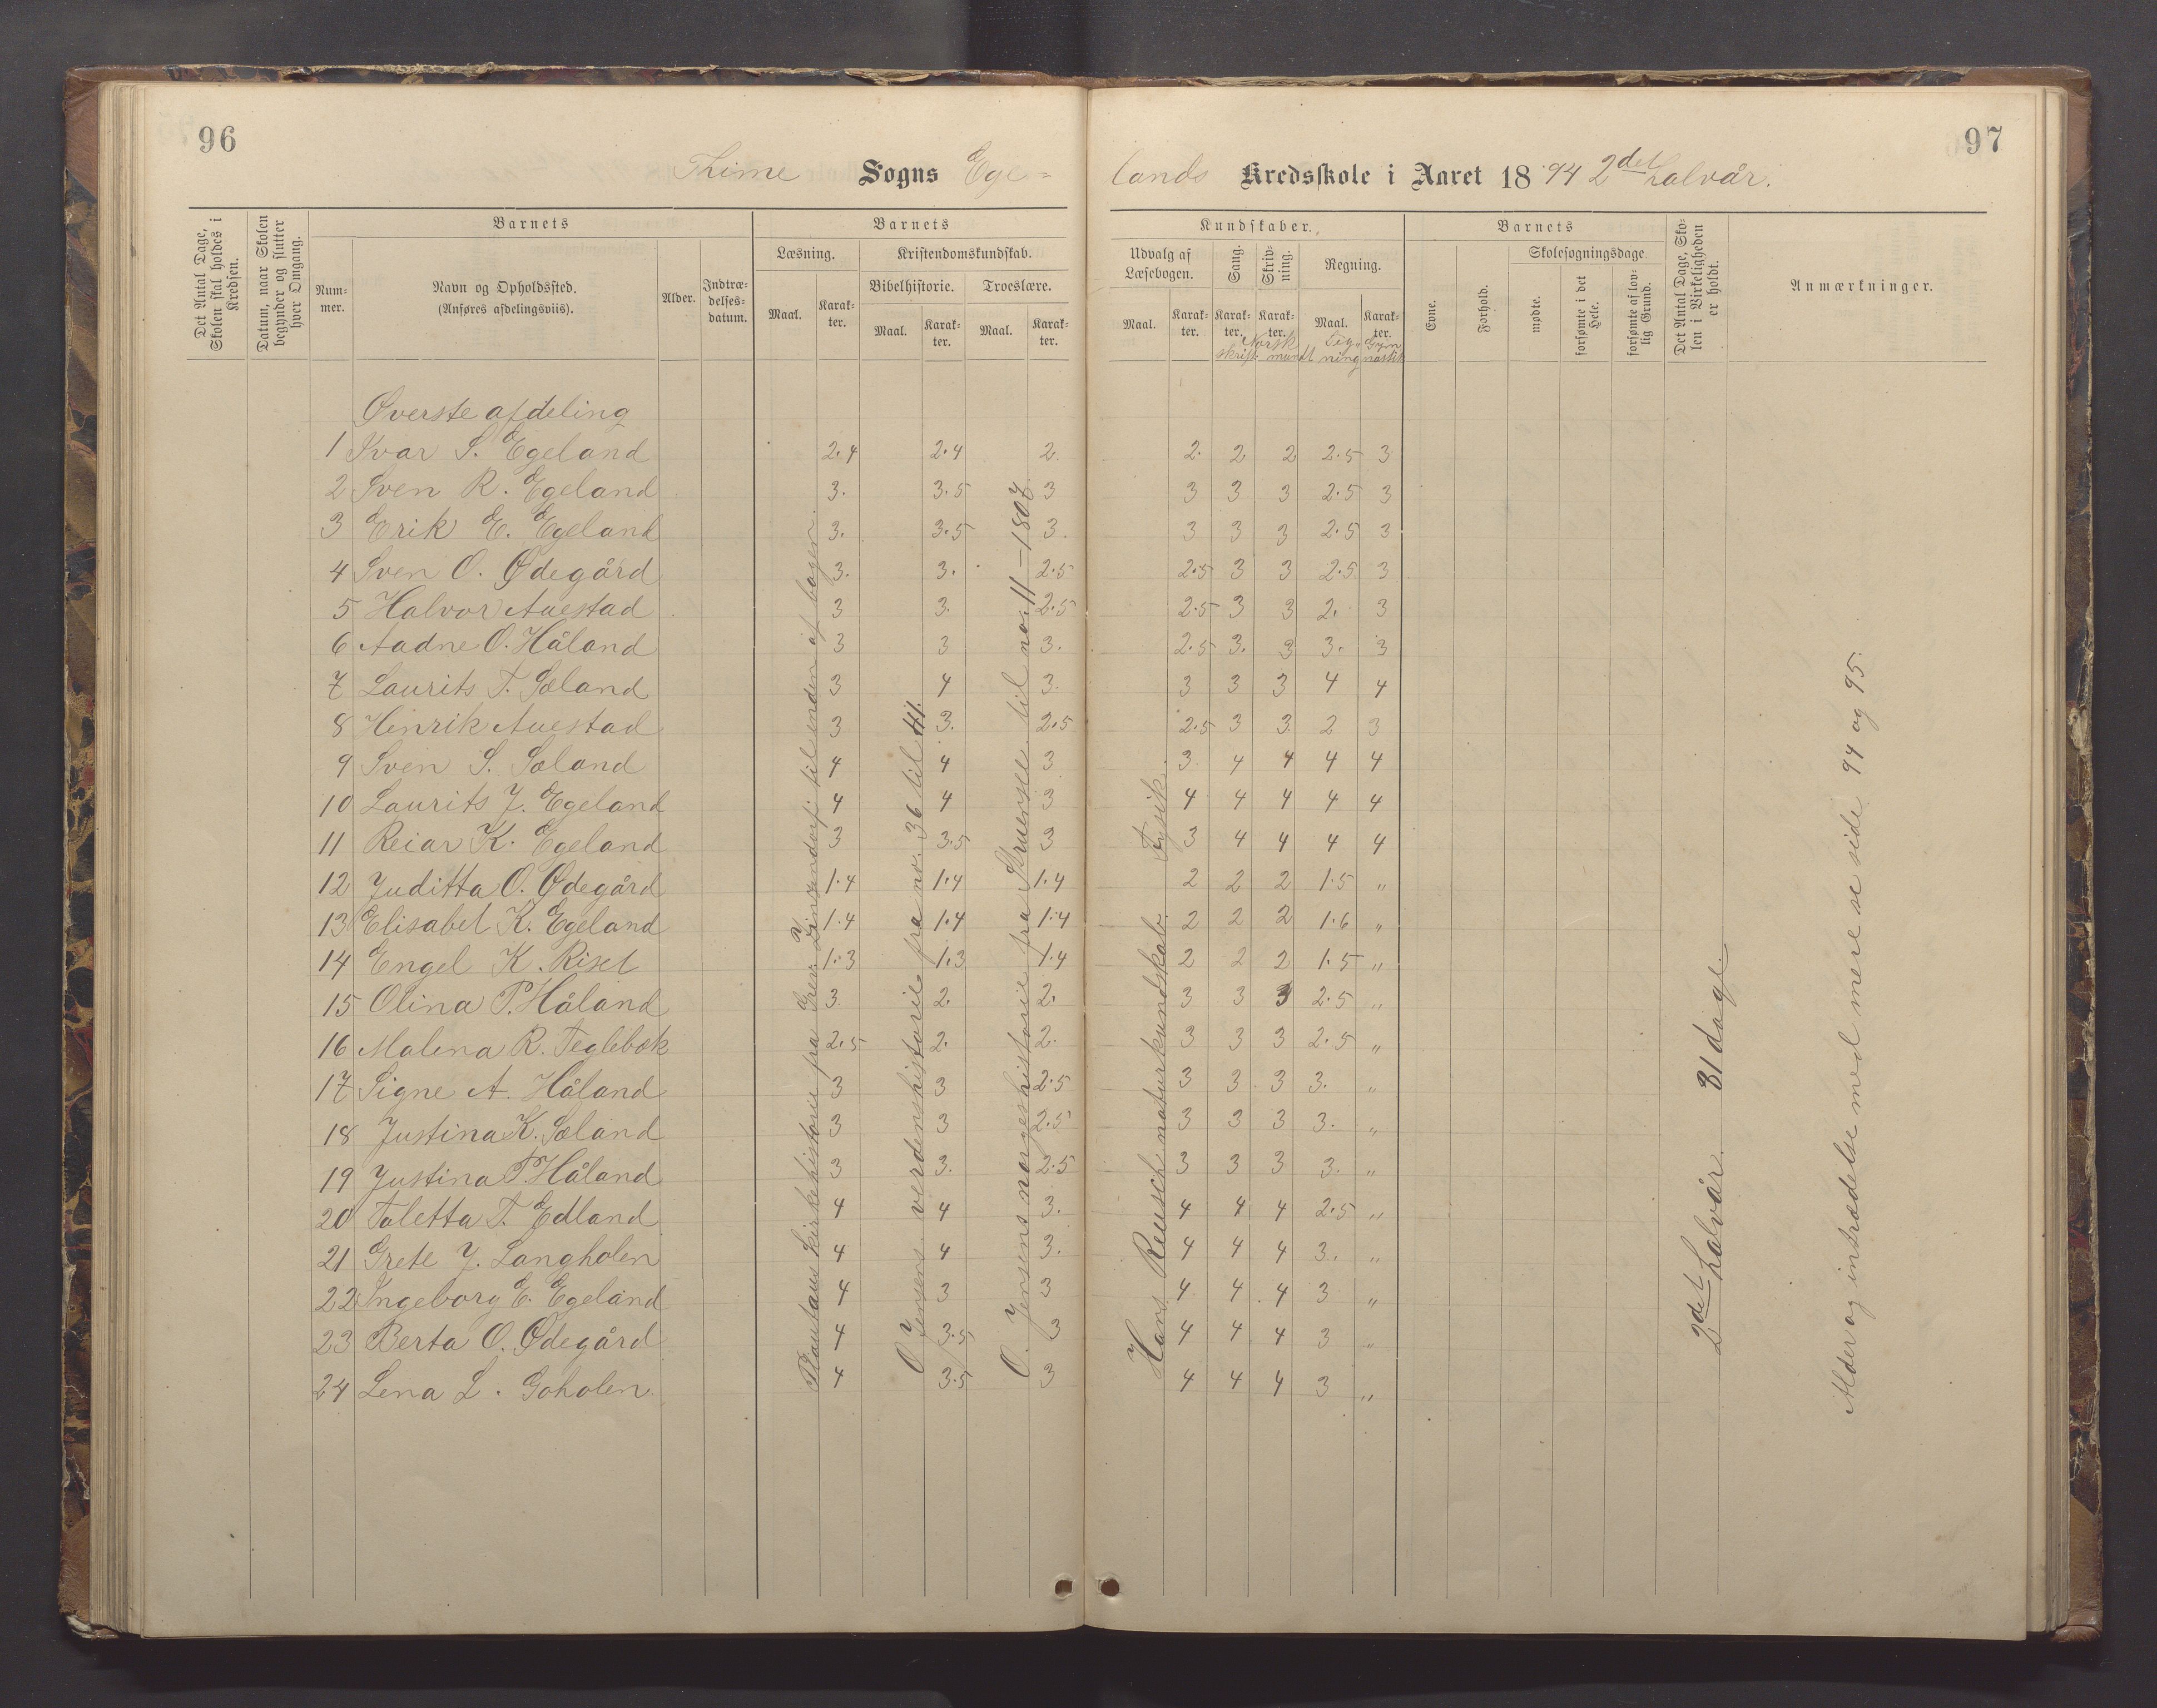 96
97
Thime Sogns Ege=
lands Kredsskole i Aaret 1894 2det halvår.
Det Antal Dage, Skolen skal holdes i Kredsen.
Datum, naar Skolen begynder og slutter hver Omgang.
Barnets
Nummer.
Navn og Opholdssted.
(Anføres afdelingsviis).
Alder.
Indtrædelsesdatum.
Barnets
Læsning.
Kristendomskundskab.
Bibelhistorie.
Troeslære.
Maal. Karakter. Maal. Karakter. Maal. Karakter.
Kundskaber.
Udvalg af Læsebogen.
Sang.
Skrivning.
Regning.
Maal. Karakter. Karakter. Karakter. Maal. Karakter.
Norsk
skrift. mundt
Tegning
Gymnastik
Barnets
Evne.
Forhold.
Skolesøgningsdage
mødte.
forsømte i det Hele.
forsømte af lovlig Grund.
Det Antal Dage, Skolen i Virkeligheden er holdt.
Anmærkninger.
Øverste afdeling
1 Ivar S. Egeland 2.4 2.4 2. 2. 2 2 2.5 3
2 Sven R. Egeland 3. 3.5 3 3 3 3 2.5 3
3 Erik E. Egeland 3. 3.5 3. 3 3 3 2.5 3
4 Sven O. Ødegård 3. 3. 2.5 2.5 3 3 2.5 3
5 Halvor Auestad 3 3. 2.5 2.5 3 3 2. 3
6 Aadne O. Håland 3 3 3. 2.5 3. 3 3. 3
7 Laurits T. Sæland 3 4 3. 3 3 3 4 4
8 Henrik Auestad 3 3. 2.5 2.5 3 3 2 3
9 Sven S. Sæland 4 4 3 3 4 4 4 4
10 Laurits J. Egeland 4 4 3 4 4 4 4 4
11 Reiar K. Egeland 3 3.5 3 3 4 4 4 4
12 Juditta O. Ødegård 1.4 1.4 1.4 2 2 2 1.5 "
13 Elisabet K. Egeland 1.4 1.4 1.4 2 2 2 1.6 "
14 Engel K. Riset 1.3 1.3 1.4 2 2 2 1.5 "
15 Olina P. Håland 3 2. 2. 3 3 3 2.5 "
16 Malena R. Teglebæk 2.5 2. 2. 3 3 3 2.5 "
17 Signe A. Håland 3 3 2.5 3 3 3 3. "
18 Justina K. Sæland 3 3 2.5 3 3 3 3. "
19 Justina P. Håland 3 3. 2.5 3 3 3 3. "
20 Taletta T. Edland 4 4 3. 4 4 4 2.5 "
21 Grete J. Langholen 4 4 3. 4 4 4 3. "
22 Ingeborg E. Egeland 4 3 3 4 4 4 3 "
23 Berta O. Ødegård 4 3.5 3 4 4 4 3 "
24 Lena L. Goholen 4 3.5 3 4 4 4 3 "
kirkehistorie fra Grev Zinzendorf til enden af bogen.
O Jensens verdenshistorie fra no. 36 til 41.
O. Jensens norgeshistorie fra Struensee til no. 11 – 1807.
Hans Reusch naturkundskab. Fysik.
2det halvår. 81 dage.
Alder og indtrædelse med mere se side 94 og 95.